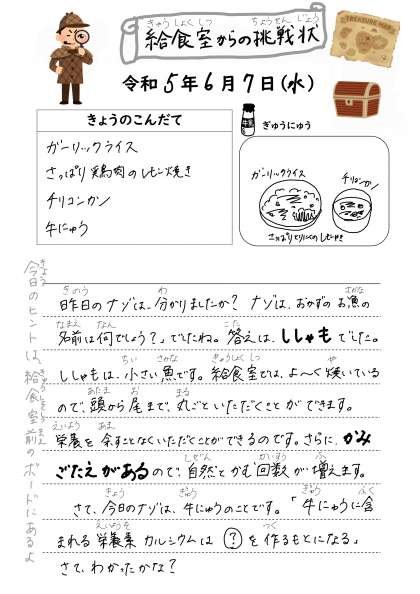 給食室からの挑戦状
TREASURE MAP
令和5年6月7日(水)
きょうのこんだて
ガーリックライス
さっぱり鶏肉のレモン焼き
チリコンカン
牛にゅう
ぎゅうにゅう
ガーリックライス
チリコンカン
さっぱりとりにくのレモンやき
今日のヒントは、給食室前のボードにあるよ
昨日のナゾは、分かりましたか？ナゾは、おかずのお魚の
名前は何でしょう？」でしたね。答えは、ししゃもでした。
ししゃもは、小さい魚です。給食室では、よ〜く焼いている
ので、頭から尾まで、丸ごといただくことができます。
栄養を余すことなくいただくことができるのです。さらに、かみ
ごたえがあるので、自然とかむ回数が増えます。
さて、今日のナゾは、牛にゅうのことです。「牛にゅうに含
まれる栄養素カルシウムは？を作るもとになる」
さて、わかったかな？